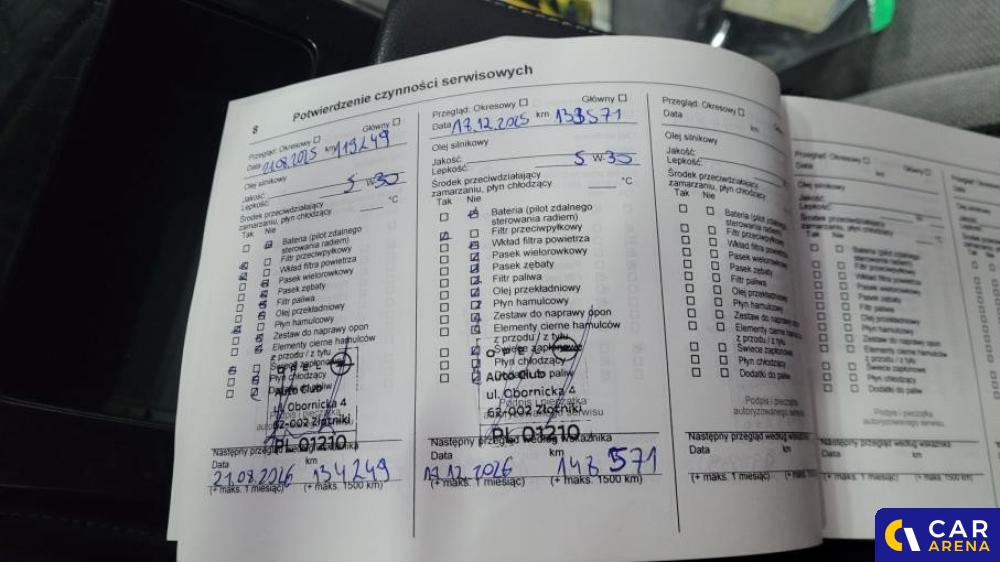 8
Potwierdzenie czynności serwisowych
Przegląd: Okresowy Główny
Data 21.08.2025 km 119249
Olej silnikowy
Jakość:
Lepkość: 5 W-30
Środek przeciwdziałający
zamarzaniu, płyn chłodzący °C
Tak Nie
Bateria (pilot zdalnego
sterowania radiem)
Filtr przeciwpyłkowy
Wkład filtra powietrza
Pasek wielorowkowy
Pasek zębaty
Filtr paliwa
Olej przekładniowy
Płyn hamulcowy
Zestaw do naprawy opon
Elementy cierne hamulców
z przodu / z tyłu
Płyn chłodzący
OPEL
Auto Club
ul. Obornicka 4
62-002 Złotniki
PL 01210
Następny przegląd według wskaźnika
Data km
21.08.2026 134249
(+ maks. 1 miesiąc) (+ maks. 1500 km)
Przegląd: Okresowy Główny
Data 17.12.2025 km 133571
Olej silnikowy
Jakość:
Lepkość: 5 W-30
Środek przeciwdziałający
zamarzaniu, płyn chłodzący °C
Tak Nie
Bateria (pilot zdalnego
sterowania radiem)
Filtr przeciwpyłkowy
Wkład filtra powietrza
Pasek wielorowkowy
Pasek zębaty
Filtr paliwa
Olej przekładniowy
Płyn hamulcowy
Zestaw do naprawy opon
Elementy cierne hamulców
z przodu / z tyłu
Świece zapłonowe
Płyn chłodzący
Dodatki do paliw
OPEL
Auto Club
ul. Obornicka 4
62-002 Złotniki
Podpis i pieczątka
autoryzowanego serwisu
PL 01210
Następny przegląd według wskaźnika
Data km
17.12.2026 148571
(+ maks. 1 miesiąc) (+ maks. 1500 km)
Przegląd: Okresowy Główny
Data km
Olej silnikowy
Jakość:
Lepkość:
Środek przeciwdziałający
zamarzaniu, płyn chłodzący °C
Tak Nie
Bateria (pilot zdalnego
sterowania radiem)
Filtr przeciwpyłkowy
Wkład filtra powietrza
Pasek wielorowkowy
Pasek zębaty
Filtr paliwa
Olej przekładniowy
Płyn hamulcowy
Zestaw do naprawy opon
Elementy cierne hamulców
z przodu / z tyłu
Świece zapłonowe
Płyn chłodzący
Dodatki do paliw
Podpis i pieczątka
autoryzowanego serwisu
Następny przegląd według wskaźnika
Data km
(+ maks. 1 miesiąc) (+ maks. 1500 km)
Przegląd: Okresowy
Data km
Olej silnikowy
Jakość:
Lepkość:
Środek przeciwdziałający
zamarzaniu, płyn chłodzący °C
Tak Nie
Pasek zębaty
Filtr paliwa
Olej przekładniowy
Płyn hamulcowy
Zestaw do naprawy opon
Elementy cierne hamulców
z przodu / z tyłu
Świece zapłonowe
Płyn chłodzący
Dodatki do paliw
Podpis i pieczątka
autoryzowanego serwisu
Następny przegląd według
Data km
(+ maks. 1 miesiąc) (+ maks. 1500 km)
CAR
ARENA